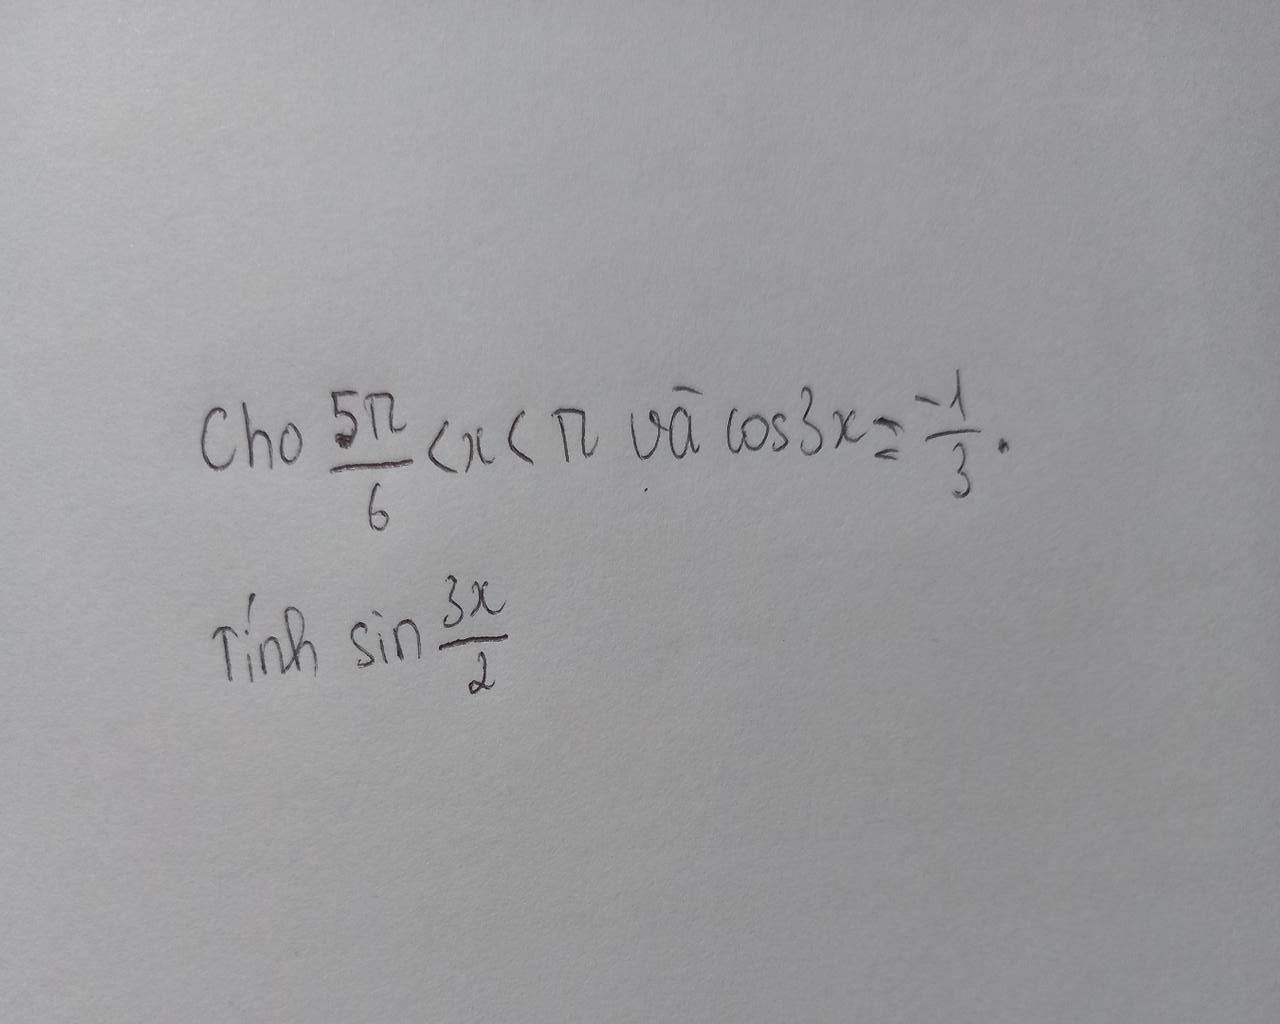 Cho 5π/6 < x < π và cos3x = -1/3.
Tính sin 3x/2